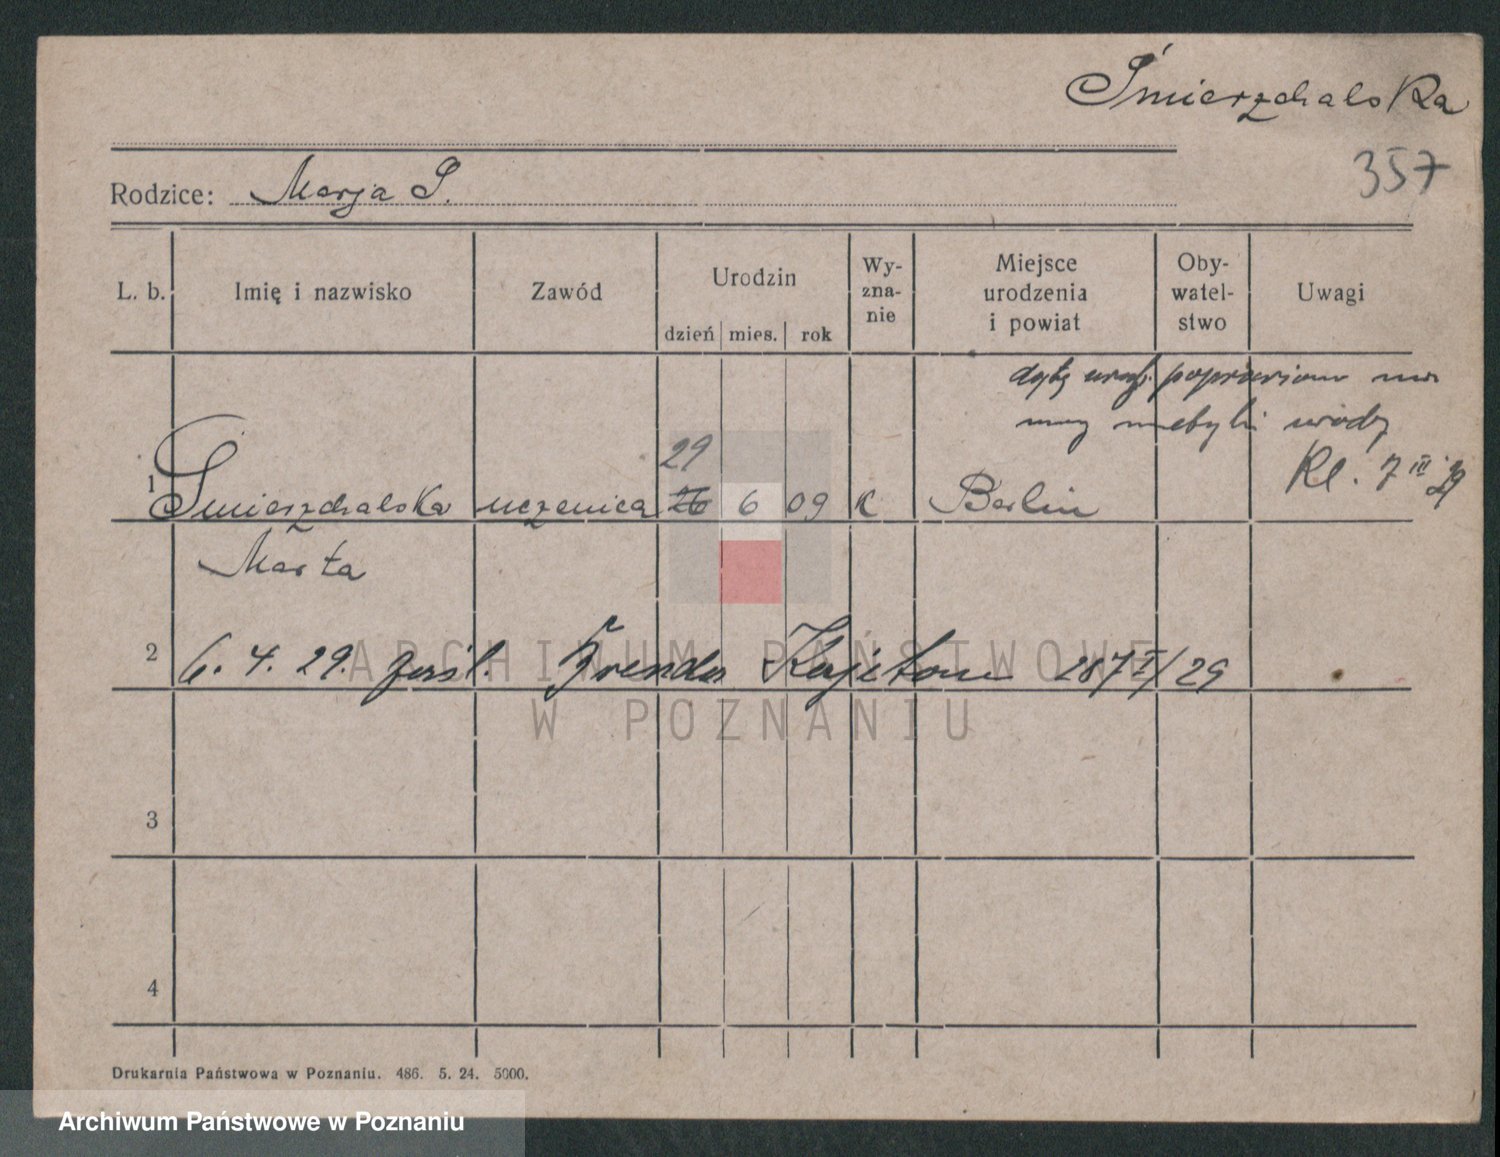 Śmierzchalska
357
Rodzice: Marja S.
L. b. Imię i nazwisko Zawód Urodzin dzień mies. rok Wy-zna-nie Miejsce urodzenia i powiat Oby-watel-stwo Uwagi
datę urodz.
29
1 Śmierzchalska uczenica 26 6 09 K Berlin Kl. 7 III 29
Marta
2 6. 4. 29. zaśl. Brenda Kajetan 287 I/29
3
4
ARCHIWUM PAŃSTWOWE
W POZNANIU
Drukarnia Państwowa w Poznaniu. 486. 5. 24. 5000.
Archiwum Państwowe w Poznaniu